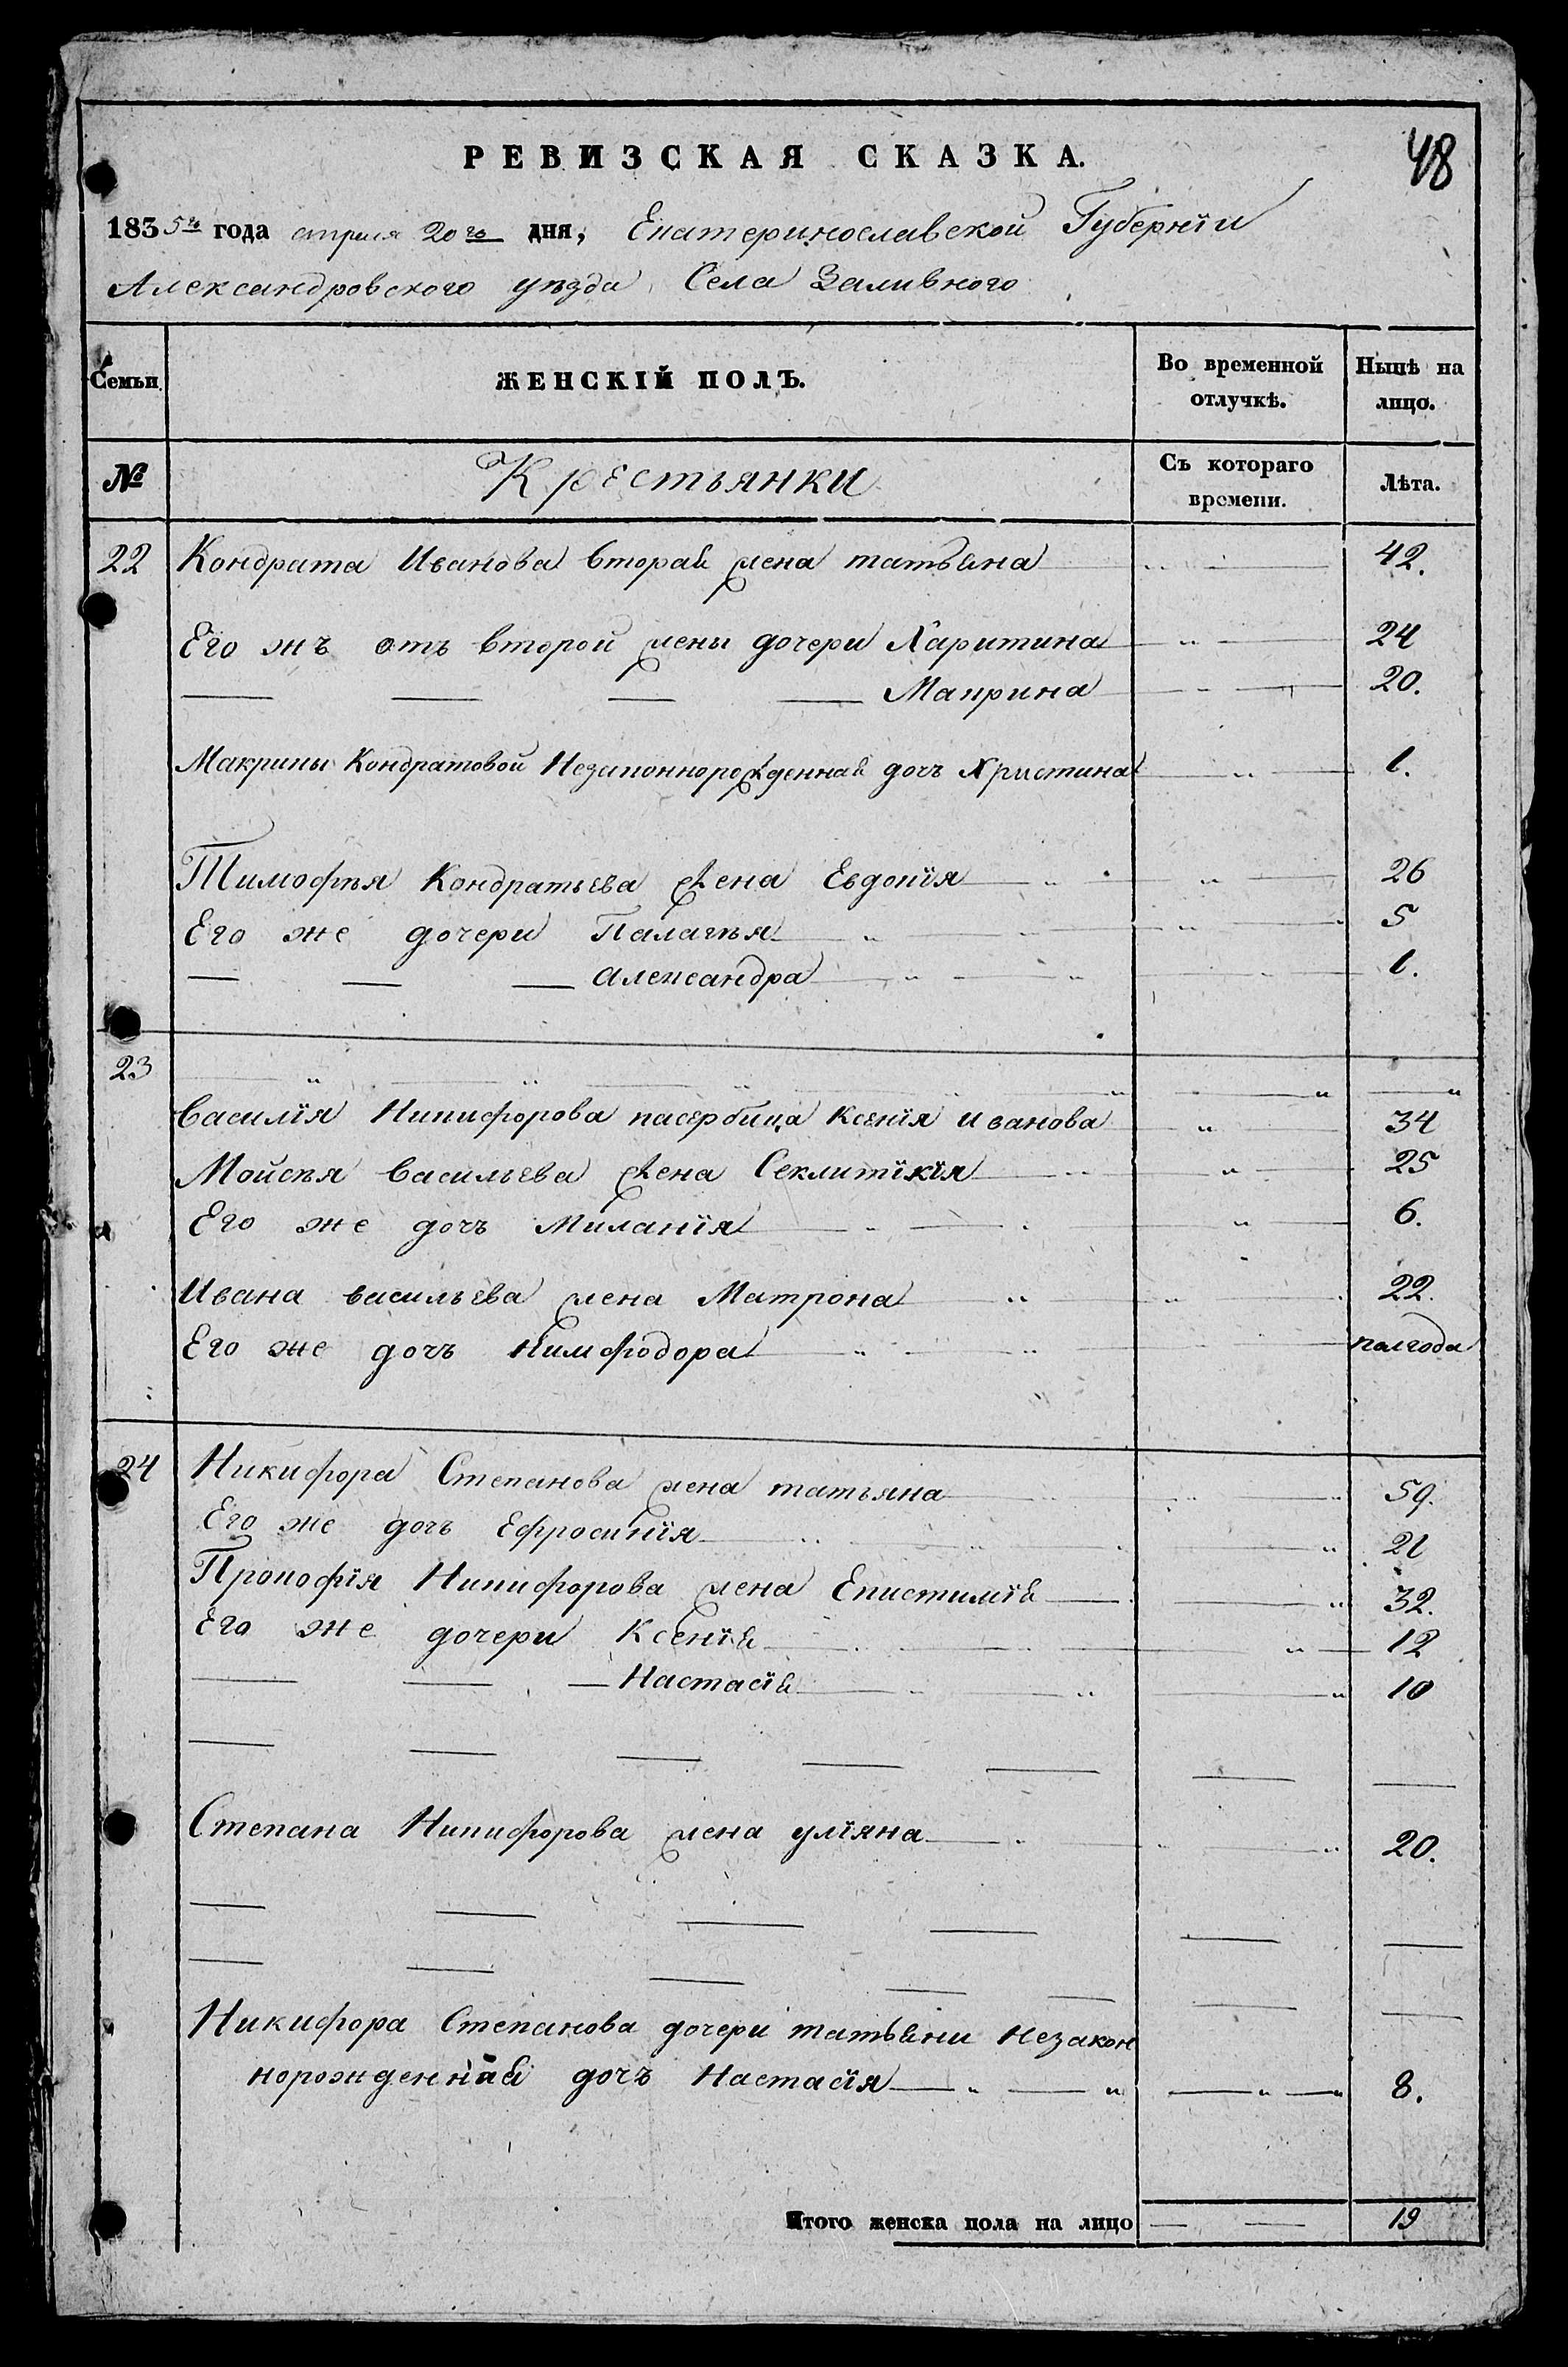 РЕВИЗСКАЯ СКАЗКА.
48
1835го года априля 20го дня, Екатеринославской Губернїи
Александровского уѣзда Села Заливного
Семьи
ЖЕНСКІЙ ПОЛЪ.
Во временной отлучкѣ.
Нынѣ на лицо.
№
Крестьянки
Съ котораго времени.
Лѣта.
22 Кондрата Иванова вторая жена татьяна 42.
Его жъ отъ второй жены дочери Харитина 24
Макрина 20.
Макрины Кондратовой Незаконнорожденная дочъ Христина 1.
Тимофѣя Кондратьева жена Евдокїя 26
Его же дочери Палагѣя 5
александра 1.
23
Василїя Никифорова пасербица Ксенїя иванова 34
Мойсѣя Васильева жена Секлитїкїя 25
Его же дочъ Миланїя 6.
Ивана васильева жена Матрона 22.
Его же дочъ Нимфодора полгода
24 Никифора Степанова жена татьяна 59.
Его же дочъ Ефросинїя 21
Прокофїя Никифорова жена Епистимїя 32.
Его же дочери Ксенїя 12
Настасїя 10
Степана Никифорова жена улїяна 20.
Никифора Степанова дочери татьяни Незакон
норожденная дочъ Настасїя 8.
Итого женска пола на лицо 19